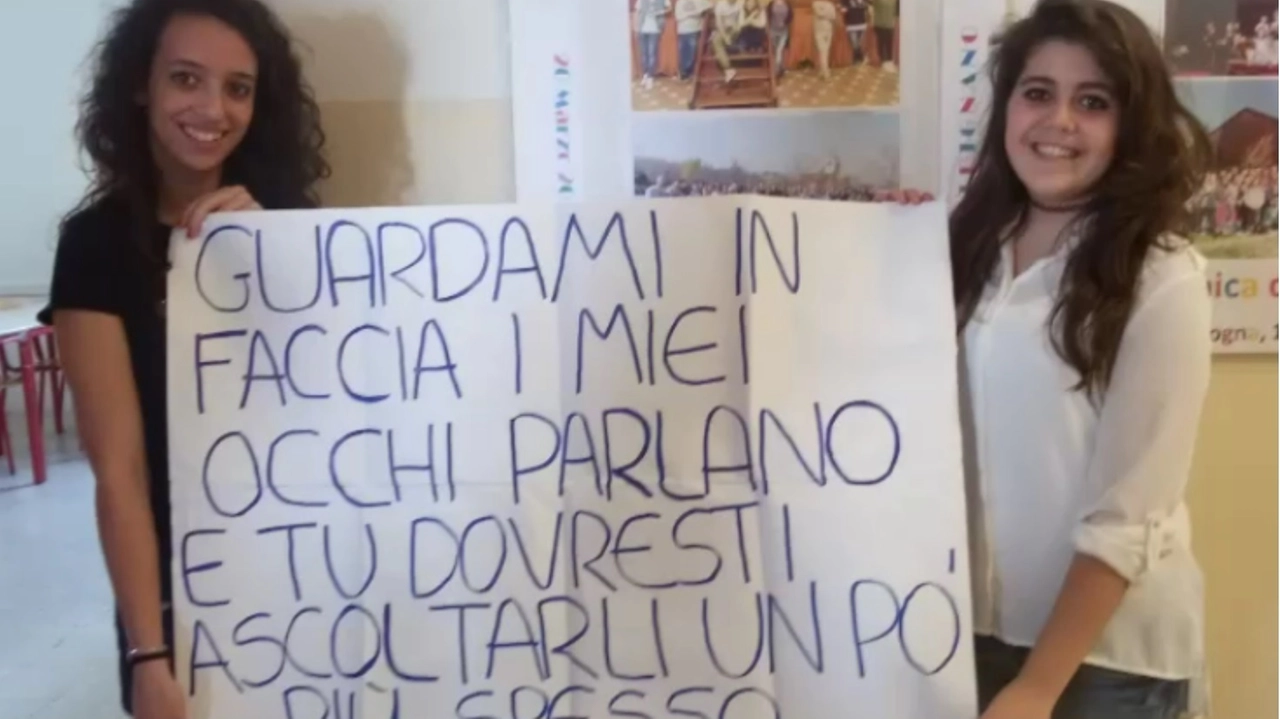 GUARDAMI IN
FACCIA I MIEI
OCCHI PARLANO
E TU DOVRESTI
ASCOLTARLI UN PO'
PIÙ SPESSO